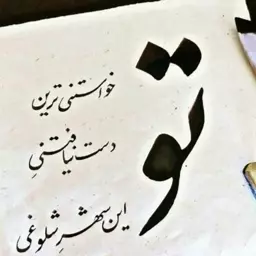 تو
خواستنی ترین
دست نیافتنیِ
این شهرِ شلوغی